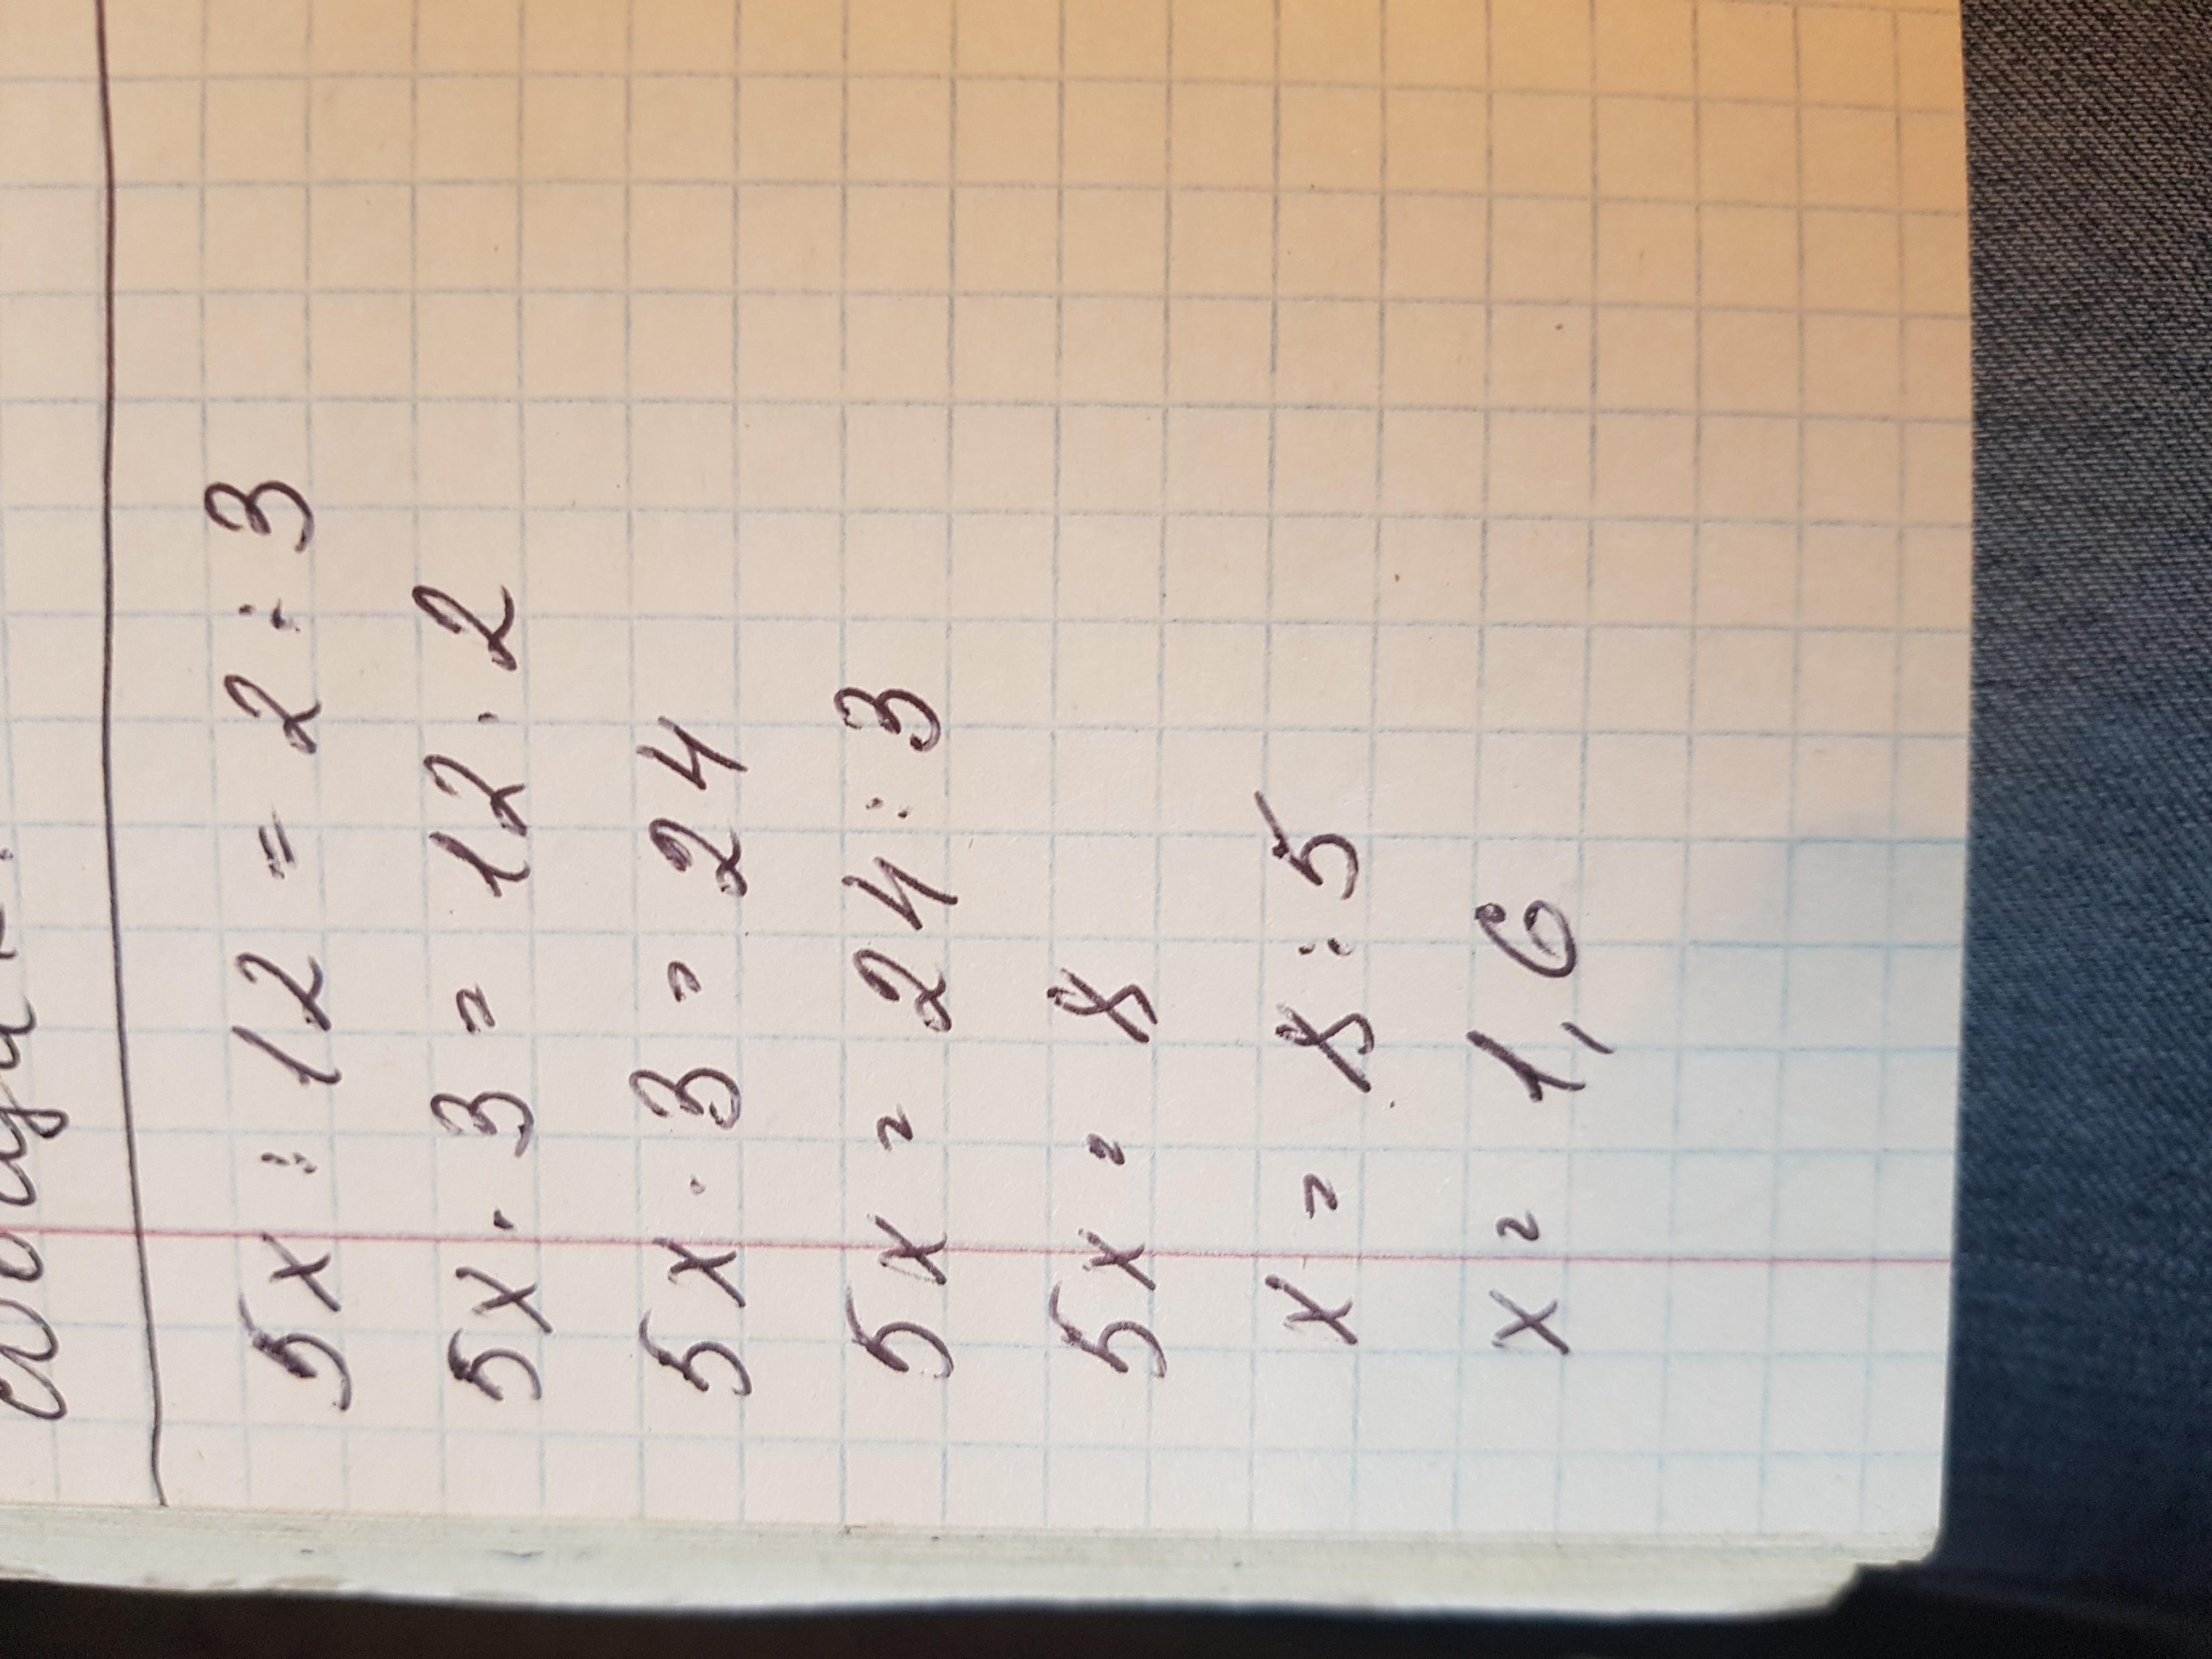 5x : 12 = 2 : 3
5x · 3 = 12 · 2
5x · 3 = 24
5x = 24 : 3
5x = 8
x = 8 : 5
x = 1,6